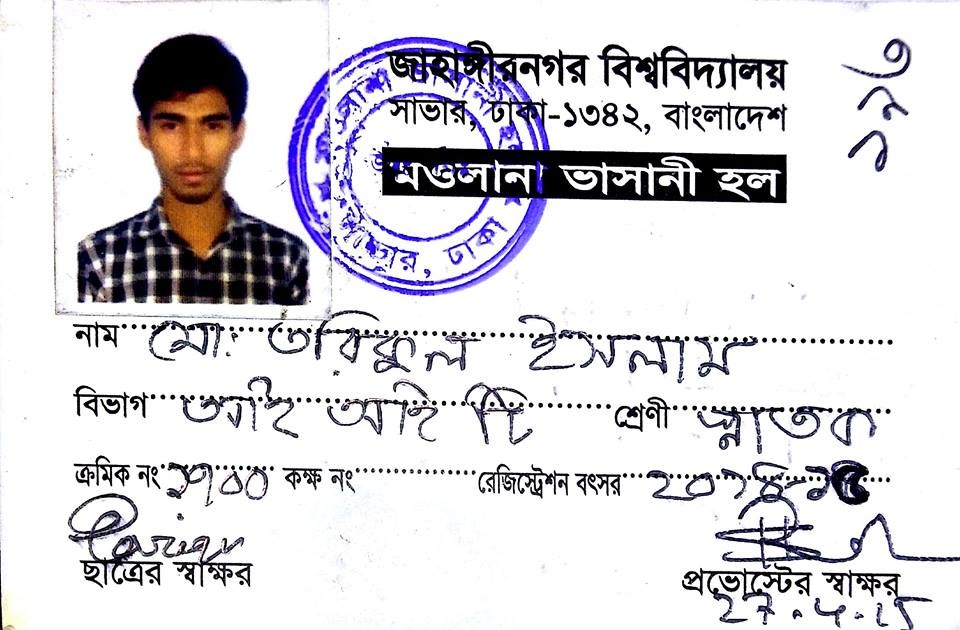 জাহাঙ্গীরনগর বিশ্ববিদ্যালয়
সাভার, ঢাকা-১৩৪২, বাংলাদেশ
মওলানা ভাসানী হল
সাভার, ঢাকা
নাম মোঃ তরিকুল ইসলাম
বিভাগ আই আই টি শ্রেণী স্নাতক
ক্রমিক নং ১৭০০ কক্ষ নং রেজিস্ট্রেশন বৎসর ২০১৪-১৫
ছাত্রের স্বাক্ষর
প্রভোস্টের স্বাক্ষর
27.4.15